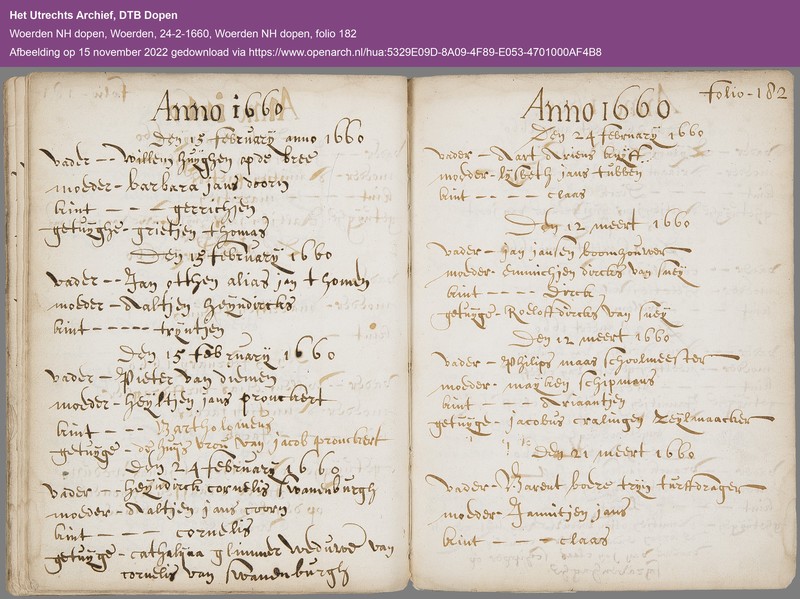 Het Utrechts Archief, DTB Dopen
Woerden NH dopen, Woerden, 24-2-1660, Woerden NH dopen, folio 182
Afbeelding op 15 november 2022 gedownload via https://www.openarch.nl/hua:5329E09D-8A09-4F89-E053-4701000AF4B8
Anno 1660
Den 15 february anno 1660
vader -- willem huijghen op de bree
moeder - barbara jans doorn
kint - - - gerrichjen
getuijghe - grietjen thomas
Den 15 february 1660
vader -- Jan otthen alias jan thomen
moeder - Aaltjen heijndircks
kint - - - - - trijntjen
Den 15 february 1660
vader -- Pieter van diemen
moeder - heijltjen jans pronckert
kint - - - Bartholomeus
getuijge - de huijs vrou van jacob pronckert
Den 24 february 1660
vader -- heijndirck cornelis swanenburgh
moeder - Aaltjen jans coorn
kint - - - cornelis
getuijge - cathalijna glimmer weduwe van
cornelis van swanenburgh
folio - 182
Anno 1660
Den 24 february 1660
vader - Aart Ariens kruijff
moeder - lijsbeth jans tubben
kint - - - - claas
Den 12 meert 1660
vader - jan jansen boomhouwer
moeder - emmichjen dircks van sneij
kint - - - - Dirck
getuijge - Roeloff dircks van sneij
Den 12 meert 1660
vader - Philips maas schoolmeester
moeder - maijken schipmans
kint - - - Ariaantjen
getuijge - jacobus cralingen zeijlmaacker
Den 21 meert 1660
vader - Barent boere trijn turffdrager
moeder - Jannitjen jans
kint - - - - claas